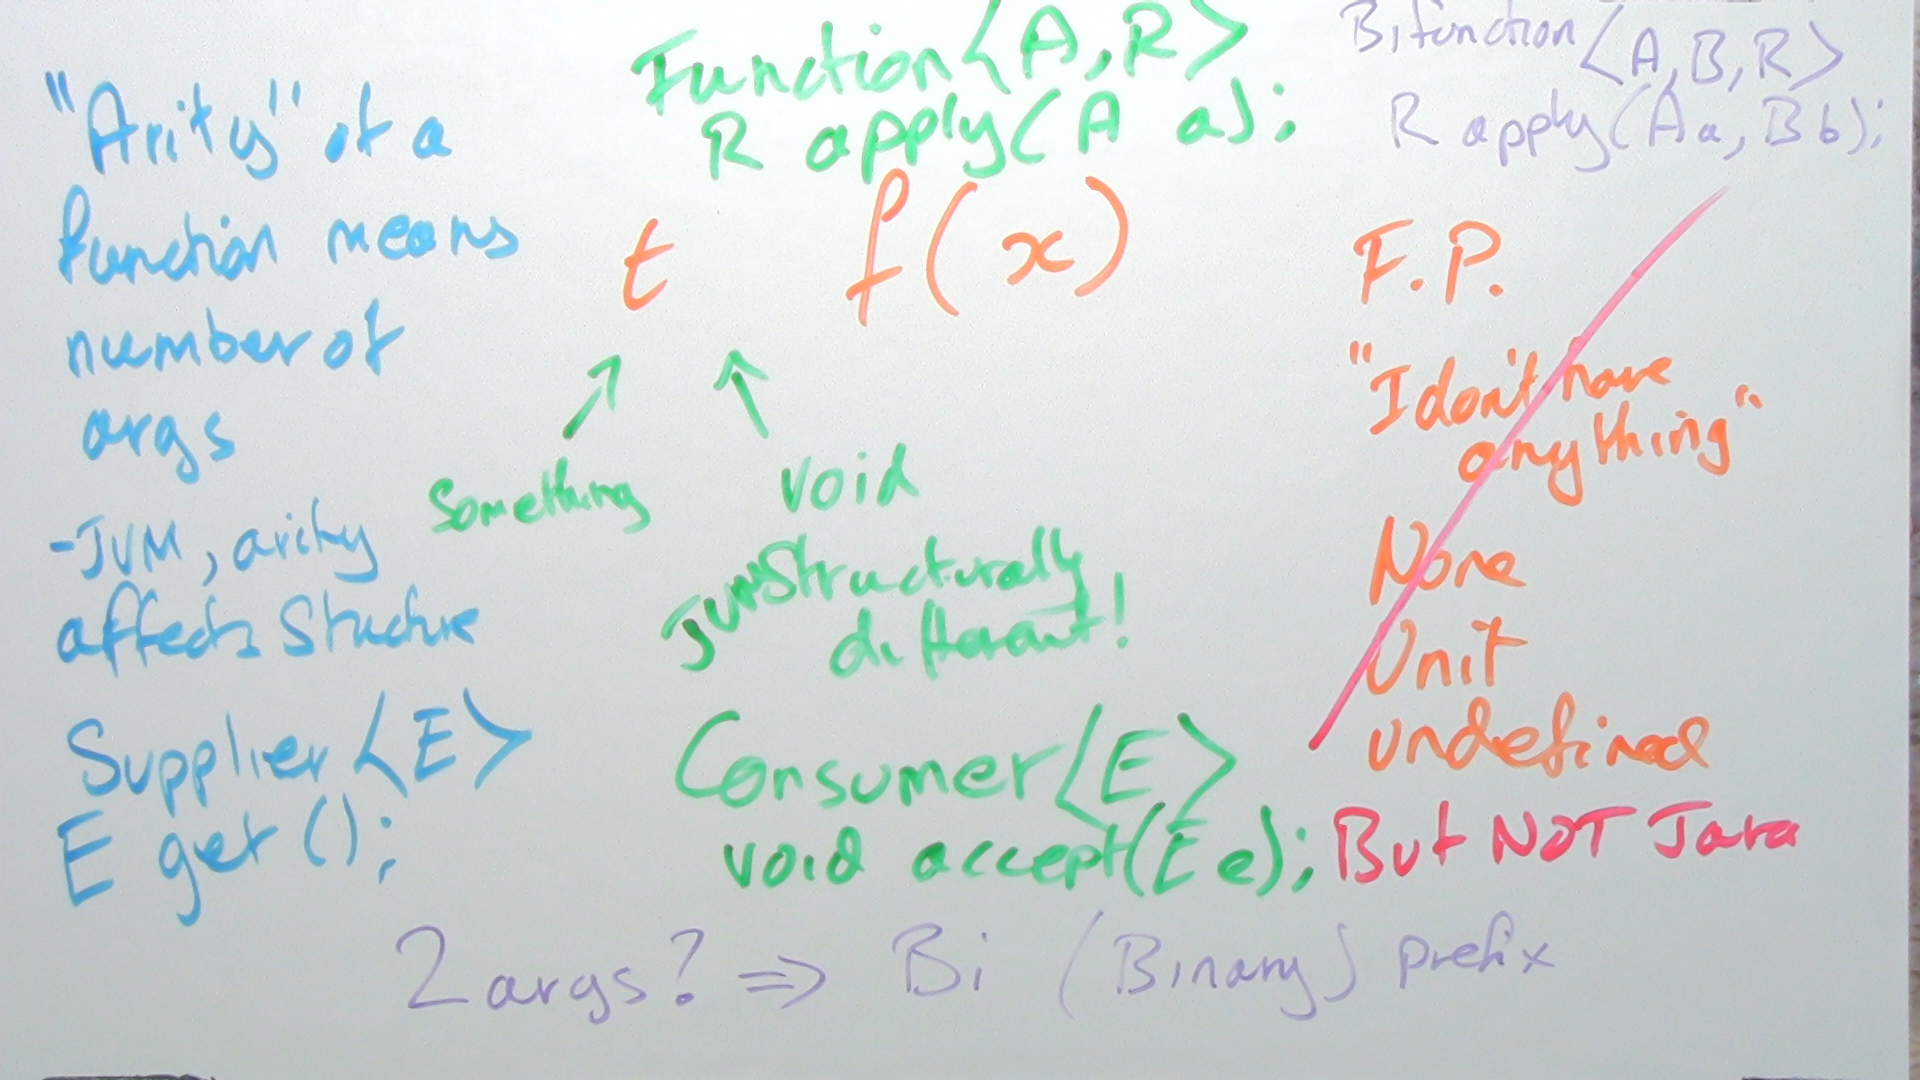 "Arity" of a
function means
number of
args
-JVM, arity
affects Structure
Supplier<E>
E get();
Function<A,R>
R apply(A a);
t f(x)
Something
void
JVM Structurally
different!
Consumer<E>
void accept(E e);
Bifunction<A,B,R>
R apply(A a, B b);
F.P.
"I don't have
anything"
None
Unit
undefined
But NOT Java
2 args? => Bi (Binary) prefix